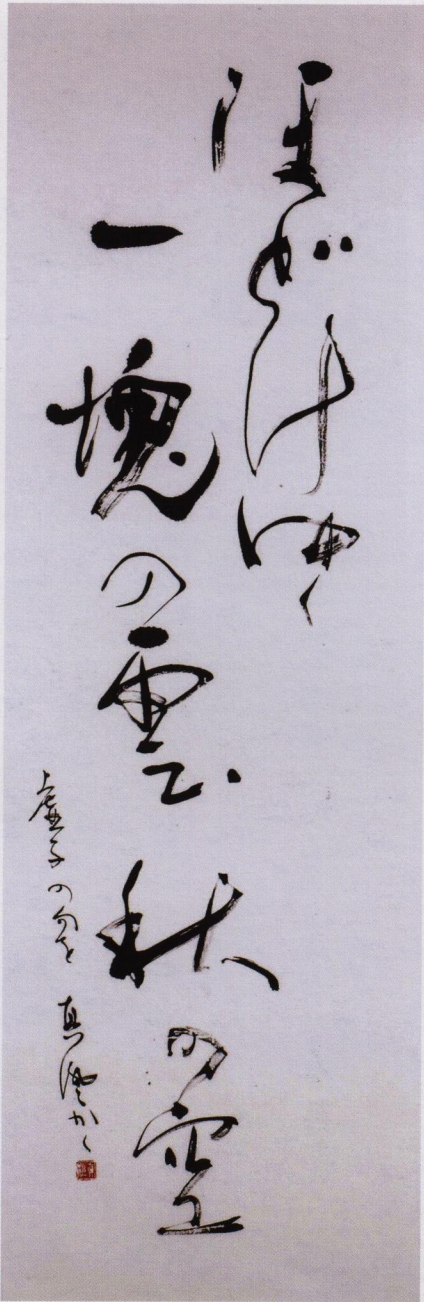 ほどけゆく
一塊の雲秋の空
虚子の句を 真かく